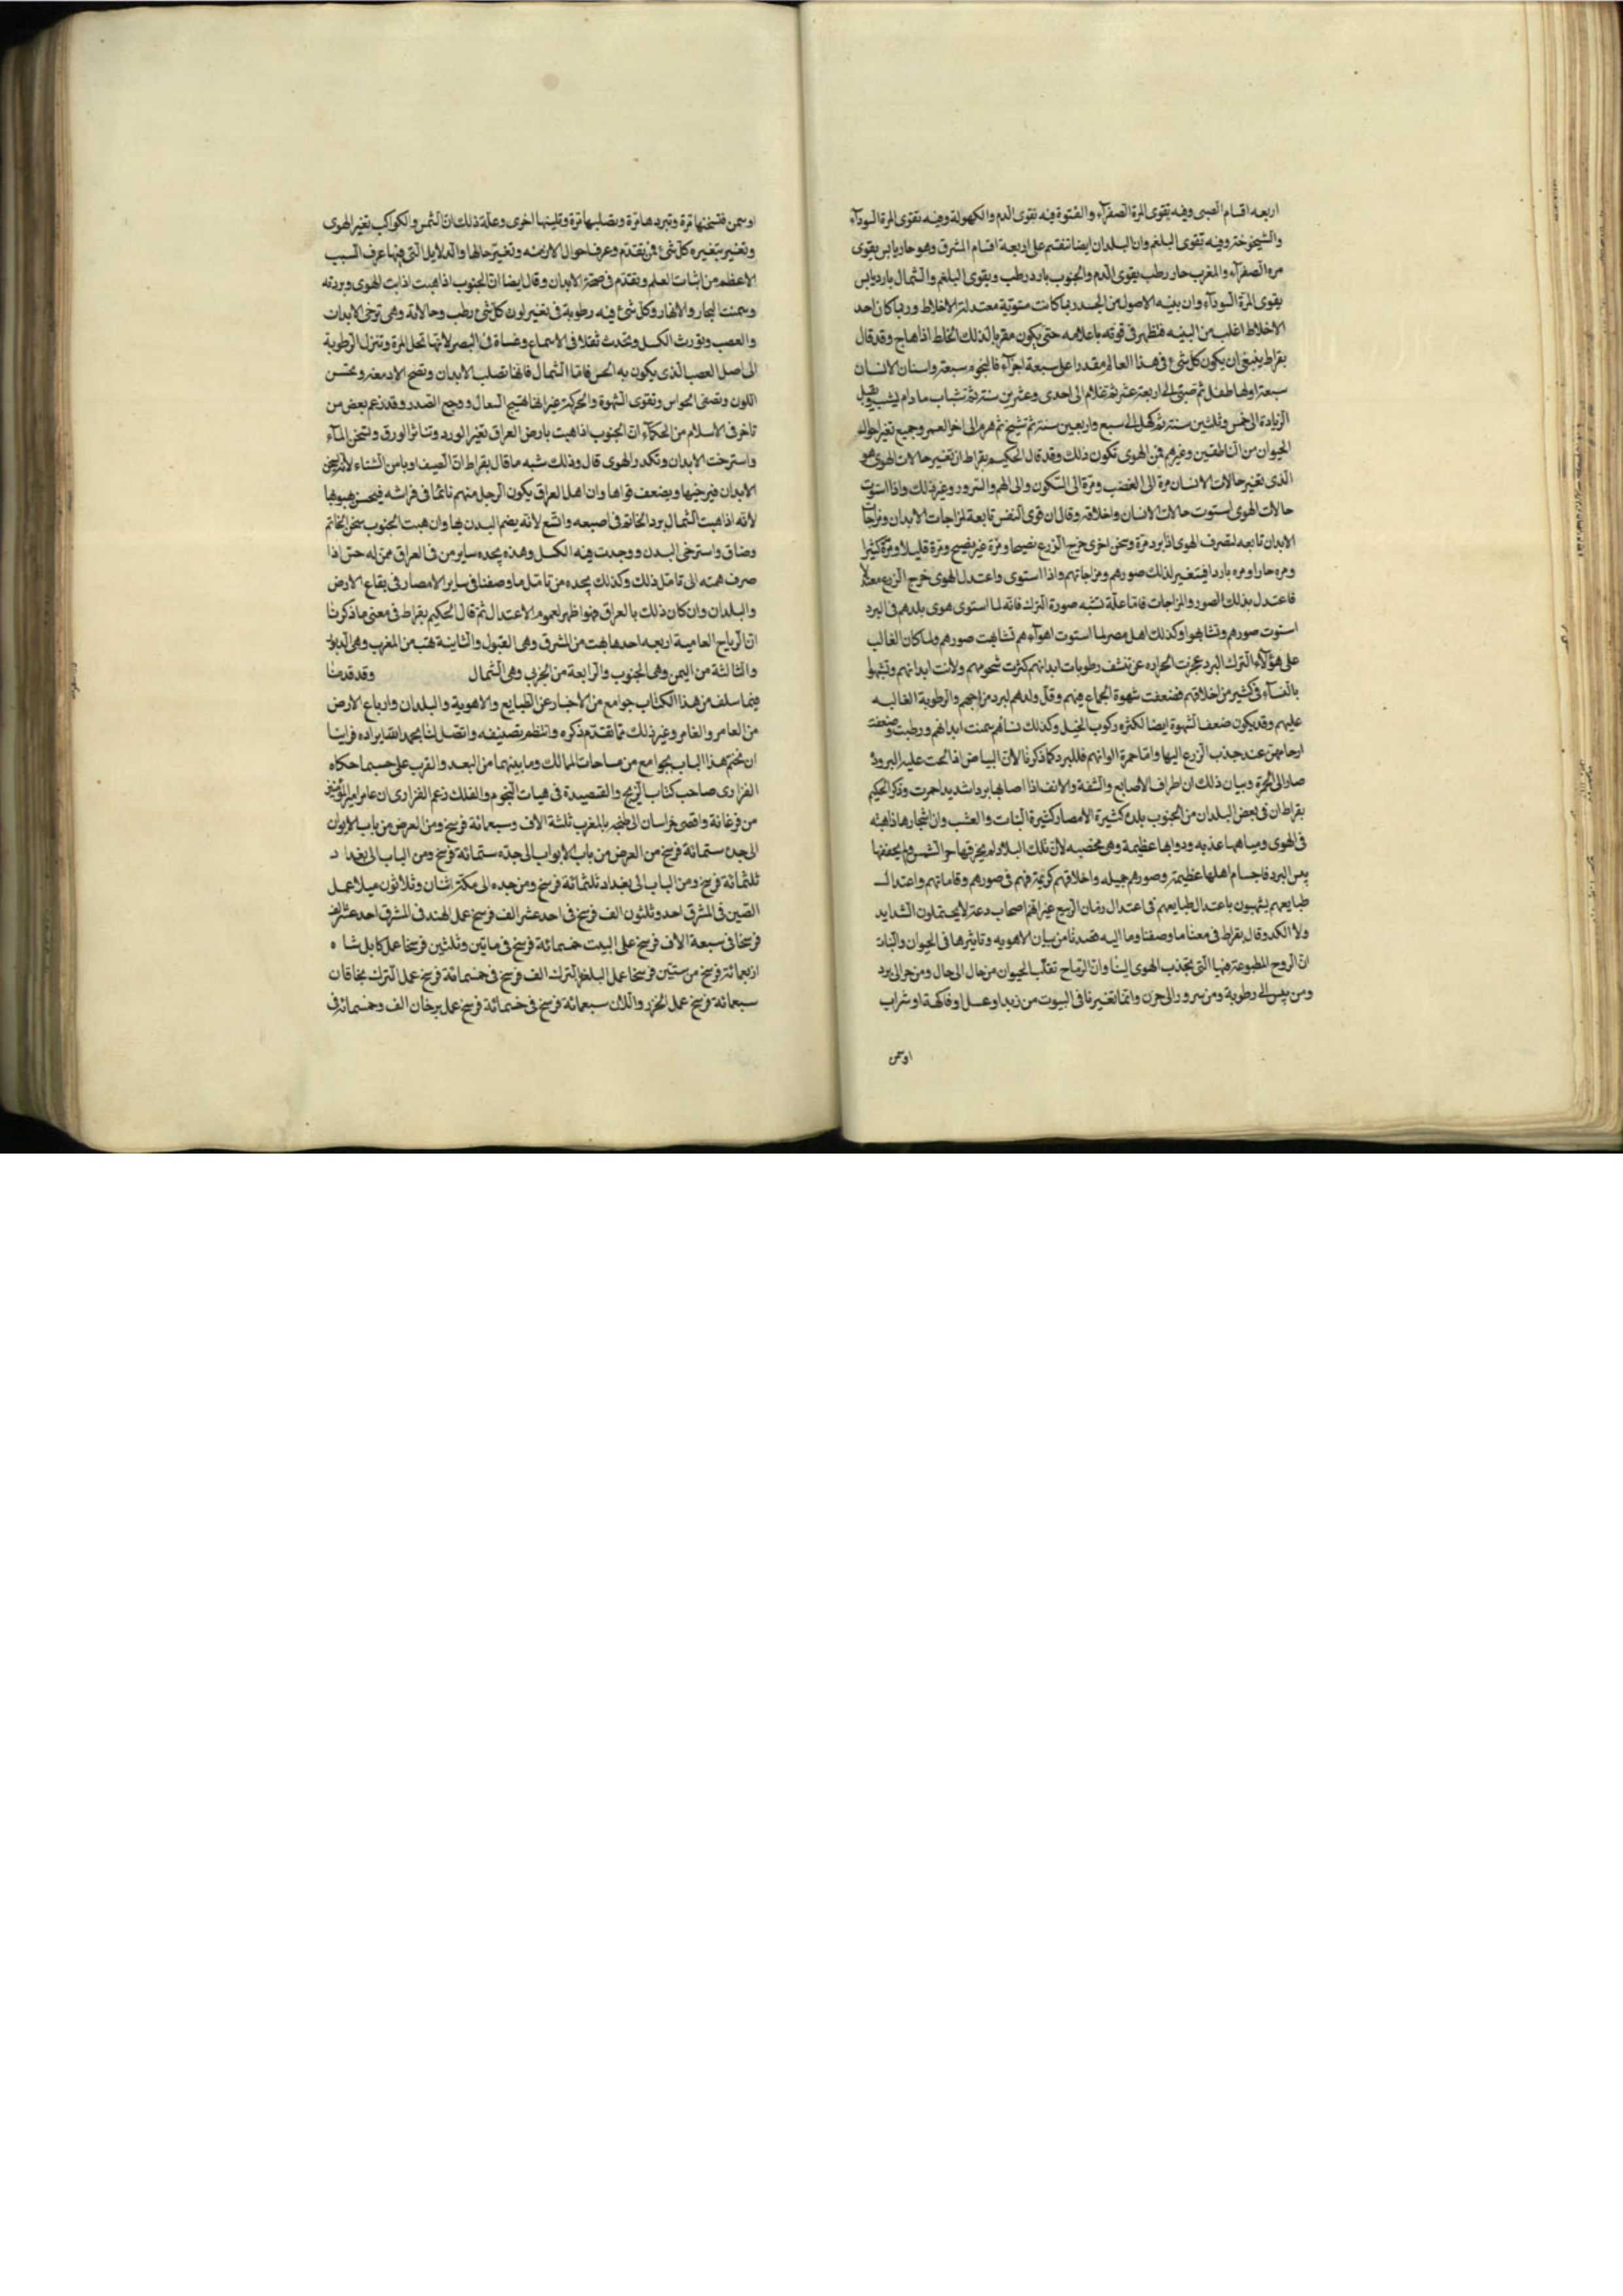 اربعه اقسام الصبى وفيه تقوى المرة الصفرآء والفتوة فيه تقوى الدم والكهولة وفيه تقوى المرة السودآء
والشيخوخة وفيه تقوى البلغم وان البلدان ايضا تنقسم على اربعة اقسام المشرق وهو حار يابس يقوى
مره الصفرآء والمغرب حار رطب يقوى الدم والجنوب بارد رطب ويقوى البلغم والشمال بارد يابس
يقوى المرة السودآء وان بنيه الاصول من الجسد ربما كانت مستوية معتدلة الاخلاط وربما كان احد
الاخلاط اغلب من البنيه فتظهر فى قوته باعلامه حتى يكون مقربا لذلك الخلط اذا هاج وقد قال
بقراط ينبغى ان يكون كل شئ فى هذا العالم مقدرا على سبعة اجزآء فالنجوم سبعة واسنان الانسان
سبعة اولها طفل ثم صبى الى اربعة عشر ثم غلام الى احدى وعشرين سنة ثم شاب ما دام يشب ويقبل
الزيادة الى خمس وثلثين سنة ثم كهل الى سبع واربعين سنة ثم شيخ ثم هرم الى اخر العمر وجميع تغير احوال
الحيوان من الناطقين وغيرهم فمن الهوى تكون ذلك وقد قال الحكيم بقراط ان تغيير حالات الهوى هو
الذى تغير حالات الانسان مرة الى الغضب ومرة الى السكون والى الهم والسرور وغير ذلك واذا استوت
حالات الهوى استوت حالات الانسان واخلاقه وقال ان قوى النفس تابعة لمزاجات الابدان ومزاجات
الابدان تابعه لتصرف الهوى اذا برد مرة وسخن اخرى خرج الزرع نضيجا ومرة غير نضيج ومرة قليلا ومرة كثيرا
ومره حارا ومره باردا فيتغير لذلك صورهم ومزاجاتهم واذا استوى واعتدل الهوى خرج الزرع معتدلا
فاعتدل بذلك الصور والمزاجات فاما علة تشبه صورة الترك فانه لما استوى هوى بلدهم فى البرد
استوت صورهم وتشابهوا وكذلك اهل مصر لما استوت اهوآءهم تشابهت صورهم ولما كان الغالب
على هؤلآء الترك البرد عجزت الحراره عن تنشف رطوبات ابدانهم كثرت شحومهم ولانت ابدانهم وتشبهوا
بالنسآء فى كثير من اخلاقهم فضعفت شهوة الجماع فيهم وقل ولدهم لبرد مزاجهم والرطوبة الغالبه
عليهم وقد يكون ضعف الشهوة ايضا لكثره ركوب الخيل وكذلك نساؤهم سمنت ابدانهم ورطبت وضعفت
ارحامهن عند جذب الزرع اليها واما حمرة الوانهم فللبرد كما ذكرنا لان البياض اذا الحت عليه البرودة
صار الى الحمرة وبيان ذلك ان اطراف الاصابع والشفة والانف اذا اصابها برد شديد احمرت وذكر الحكيم
بقراط ان فى بعض البلدان من الجنوب بلدة كثيرة الامصار كثيرة النبات والعشب وان اشجارها ذاهبه
فى الهوى ومياهها عذبه ودوابها عظيمة وهى مخصبه لان تلك البلاد لم يحرقها حر الشمس ولم يجففها
يبس البرد فاجسام اهلها عظيمة وصورهم جميله واخلاقهم كريمة فهم فى صورهم وقاماتهم واعتدال
طبايعهم يشبهون باعتدال طبايعهم فى اعتدال زمان الربيع غير انهم اصحاب دعة لا يحتملون الشدايد
ولا الكد وقال بقراط فى معنا ما وصفنا وما اليه قصدنا من بيان الاهويه وتاثيرها فى الحيوان والنبات
ان الروح المطبوعة فينا هى التى تجذب الهوى الينا وان الرياح تقلب الحيوان من حال الى حال ومن حر الى برد
ومن يبس الى رطوبة ومن سرور الى حزن وانما تغير ما فى البيوت من زبد او عسل او فاكهة او شراب
او سمن
او سمن فتسخنها مرة وتبردها مرة وتصلبها مرة وتلينها اخرى وعلة ذلك ان الشمس والكواكب تغير الهوى
وتغير بتغيره كل شئ فمن تقدم وعرف احوال الازمنه وتغيير حالها والدلايل التى فيها عرف السبب
الاعظم من اثبات العلم وتقدم فى صحة الابدان وقال ايضا ان الجنوب اذا هبت اذابت الهوى وبردته
وسخنت البحار والانهار وكل شئ فيه رطوبة فى تغيير لون كل شئ رطب وحالاته وهى ترخى الابدان
والعصب وتورث الكسل وتحدث ثقلا فى الاسماع وغشاة فى البصر لانها تحل المرة وتنزل الرطوبة
الى اصل العصب الذى يكون به الحس فاما الشمال فانها تصلب الابدان وتصح الادمغه وتحسن
اللون وتصفى الحواس وتقوى الشهوة والحركة غير انها تهيج السعال ووجع الصدر وقد زعم بعض من
تاخر فى الاسلام من الحكمآء ان الجنوب اذا هبت بارض العراق تغير الورد وتناثر الورق واسخن المآء
واسترخت الابدان وتكدر الهوى قال وذلك شبه ما قال بقراط ان الصيف اوبا من الشتاء لانه يسخن
الابدان فيرخيها ويضعف قواها وان اهل العراق يكون الرجل منهم نائما فى فراشه فيحس بهبوبها
لانه اذا هبت الشمال برد الخاتم فى اصبعه واتسع لانه يضم البدن بها وان هبت الجنوب سخن الخاتم
وضاق واسترخى البدن ووجدت فيه الكسل وهذه يجده ساير من فى العراق ممن له حس اذا
صرف همته الى تامل ذلك وكذلك يجده من تامل ما وصفنا فى ساير الامصار فى بقاع الارض
والبلدان وان كان ذلك بالعراق فهو اظهر لعموم الاعتدال ثم قال الحكيم بقراط فى معنى ما ذكرنا
ان الرياح العامية اربعه احدها تهب من المشرق وهى القبول والثانية تهب من المغرب وهى الدبور
والثالثة من اليمن وهى الجنوب والرابعة من الجربى وهى الشمال وقد قدمنا
فيما سلف من هذا الكتاب جوامع من الاخبار عن الطبايع والاهوية والبلدان وارباع الارض
من العامر والغامر وغير ذلك مما تقدم ذكره وانتظم تصنيفه واتصل لنا بحمد الله ايراده فراينا
ان نختم هذا الباب بجوامع من مساحات الممالك وما بينهما من البعد والقرب على حسب ما حكاه
الفزارى صاحب كتاب الزيج والقصيدة فى هيات النجوم والفلك زعم الفزارى ان عامر امير المؤمنين
من فرغانة واقصى خراسان الى طنجه بالمغرب ثلثة الاف وسبعمائة فرسخ ومن العرض من باب الابواب
الى جدة ستمائة فرسخ من العرض من باب الابواب الى جده ستمائة فرسخ ومن الباب الى بغداد
ثلثمائة فرسخ ومن الباب الى بغداد ثلثمائة فرسخ ومن جده الى مكة اثنان وثلاثون ميلا عمل
الصين فى المشرق احد وثلثون الف فرسخ فى احد عشر الف فرسخ عمل الهند فى المشرق احد عشر الف
فرسخا فى سبعة الاف فرسخ على البيت خمسمائة فرسخ فى مائتين وثلثين فرسخا عمل كابل شاه
اربعمائة فرسخ من ستين فرسخا عمل البلغز الترك الف فرسخ فى خمسمائة فرسخ عمل الترك بخاقان
سبعمائة فرسخ عمل الخزر واللان سبعمائة فرسخ فى خمسمائة فرسخ عمل برجان الف وخمسمائة فى